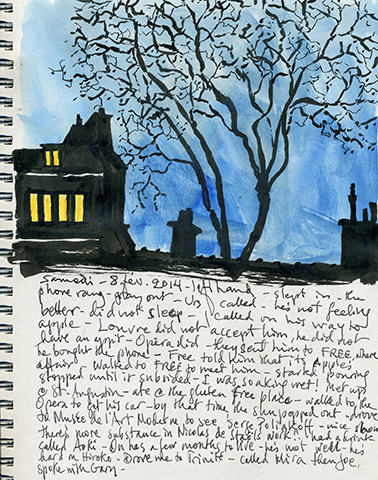 samedi - 8 fév. 2014 - left hand
phone rang - stay out - Us - slept in - the
better - did not sleep - called - he's not feeling
apple - Louvre did not accept him, he did not
have an appt - Opera did - they sent him to FREE, where
he bought the phone - Free told him that it's Apple's
affair - Walked to FREE to meet him - started pouring
stopped until it subsided - I was soaking wet! Met up
@ St-Augustin - ate @ the gluten free place - walked to the
Opera to get his car - by that time the sun popped out - drove
to Musée de l'Art Moderne to see Serge Poliakoff - nice show
there's more substance in Nicolas de Staël's work! I had a drink
called Aoki - Un has a few months to live - he's not well - he's
hard on Hiroko - Drove me to Trinité - called Mira then Joe,
spoke with Gary -